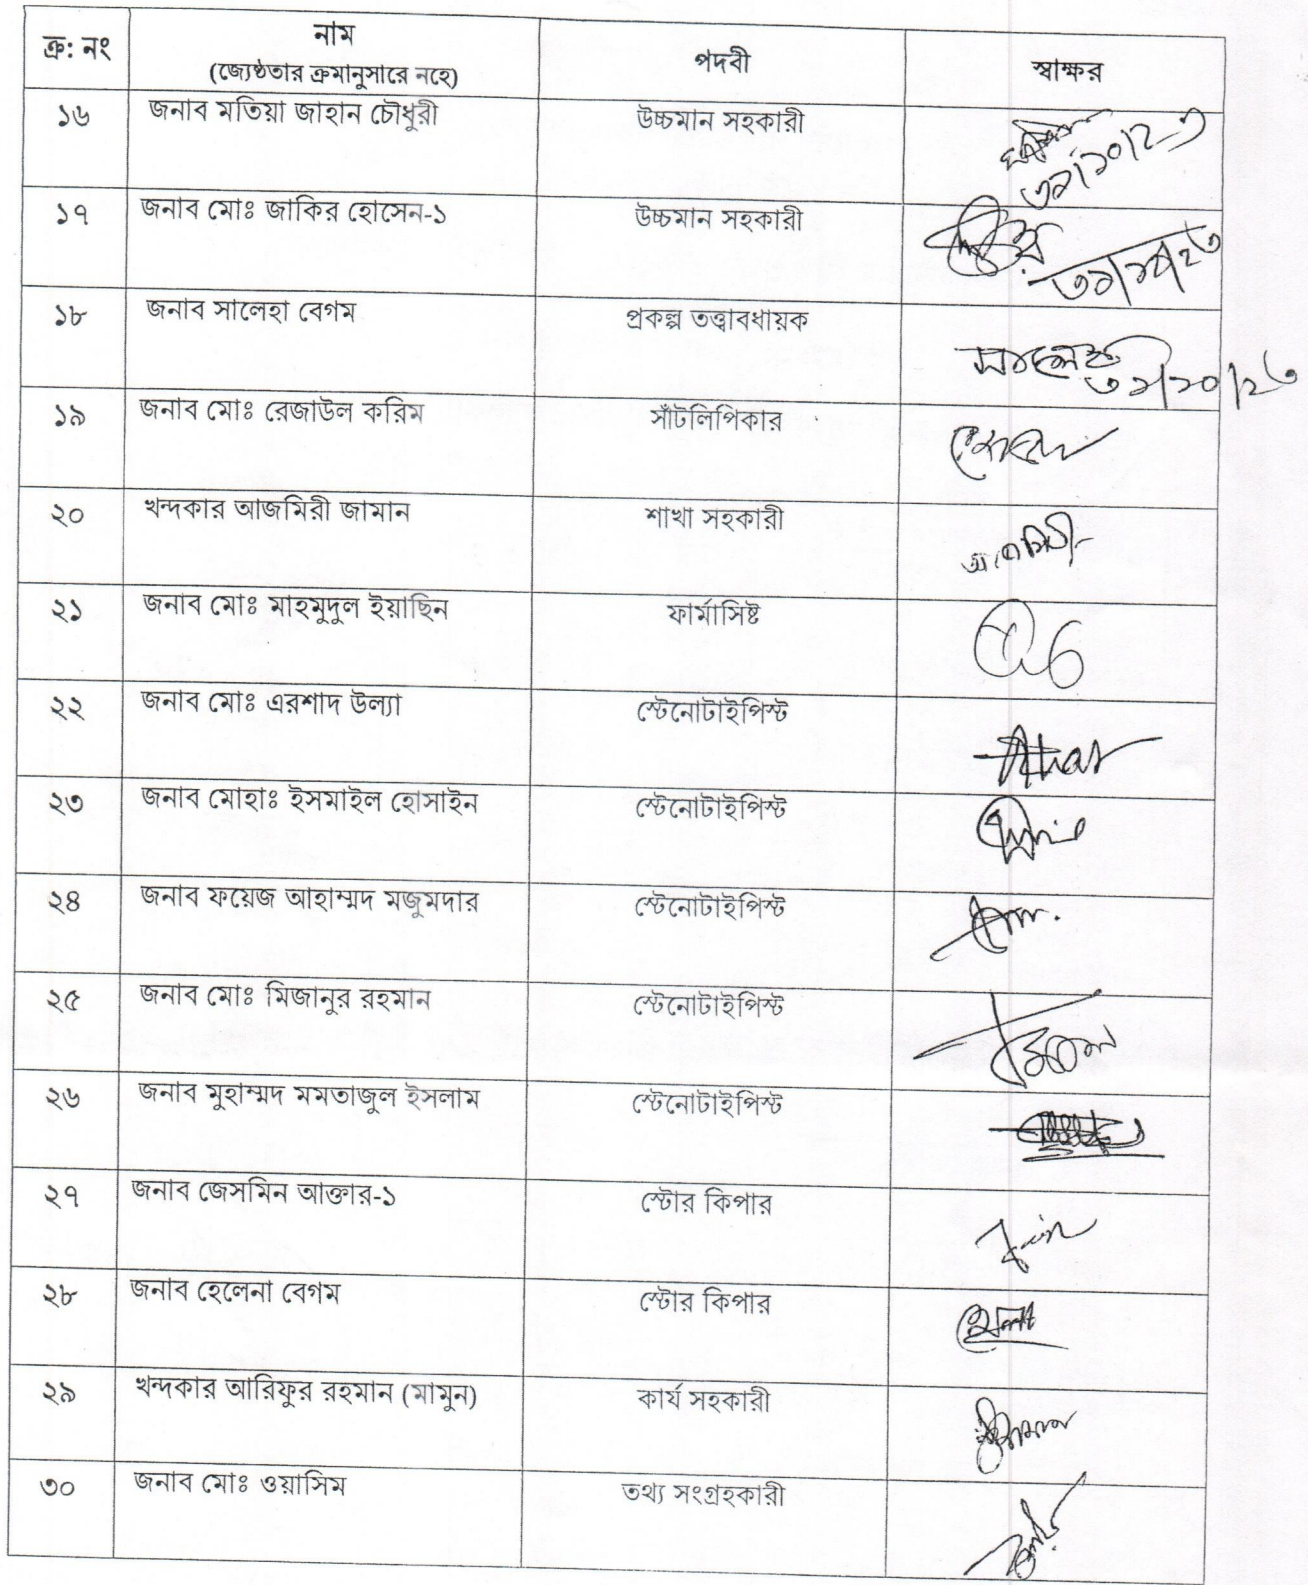 ক্র: নং নাম পদবী স্বাক্ষর
(জ্যেষ্ঠতার ক্রমানুসারে নহে)
১৬ জনাব মতিয়া জাহান চৌধুরী উচ্চমান সহকারী
৩১/১০/২৩
১৭ জনাব মোঃ জাকির হোসেন-১ উচ্চমান সহকারী
৩১/১০/২৩
১৮ জনাব সালেহা বেগম প্রকল্প তত্ত্বাবধায়ক সালেহা
৩১/১০/২৩
১৯ জনাব মোঃ রেজাউল করিম সাঁটলিপিকার
২০ খন্দকার আজমিরী জামান শাখা সহকারী আজমিরী
২১ জনাব মোঃ মাহমুদুল ইয়াছিন ফার্মাসিষ্ট
২২ জনাব মোঃ এরশাদ উল্যা স্টেনোটাইপিস্ট
২৩ জনাব মোহাঃ ইসমাইল হোসাইন স্টেনোটাইপিস্ট
২৪ জনাব ফয়েজ আহাম্মদ মজুমদার স্টেনোটাইপিস্ট
২৫ জনাব মোঃ মিজানুর রহমান স্টেনোটাইপিস্ট
২৬ জনাব মুহাম্মদ মমতাজুল ইসলাম স্টেনোটাইপিস্ট
২৭ জনাব জেসমিন আক্তার-১ স্টোর কিপার
২৮ জনাব হেলেনা বেগম স্টোর কিপার
২৯ খন্দকার আরিফুর রহমান (মামুন) কার্য সহকারী
৩০ জনাব মোঃ ওয়াসিম তথ্য সংগ্রহকারী